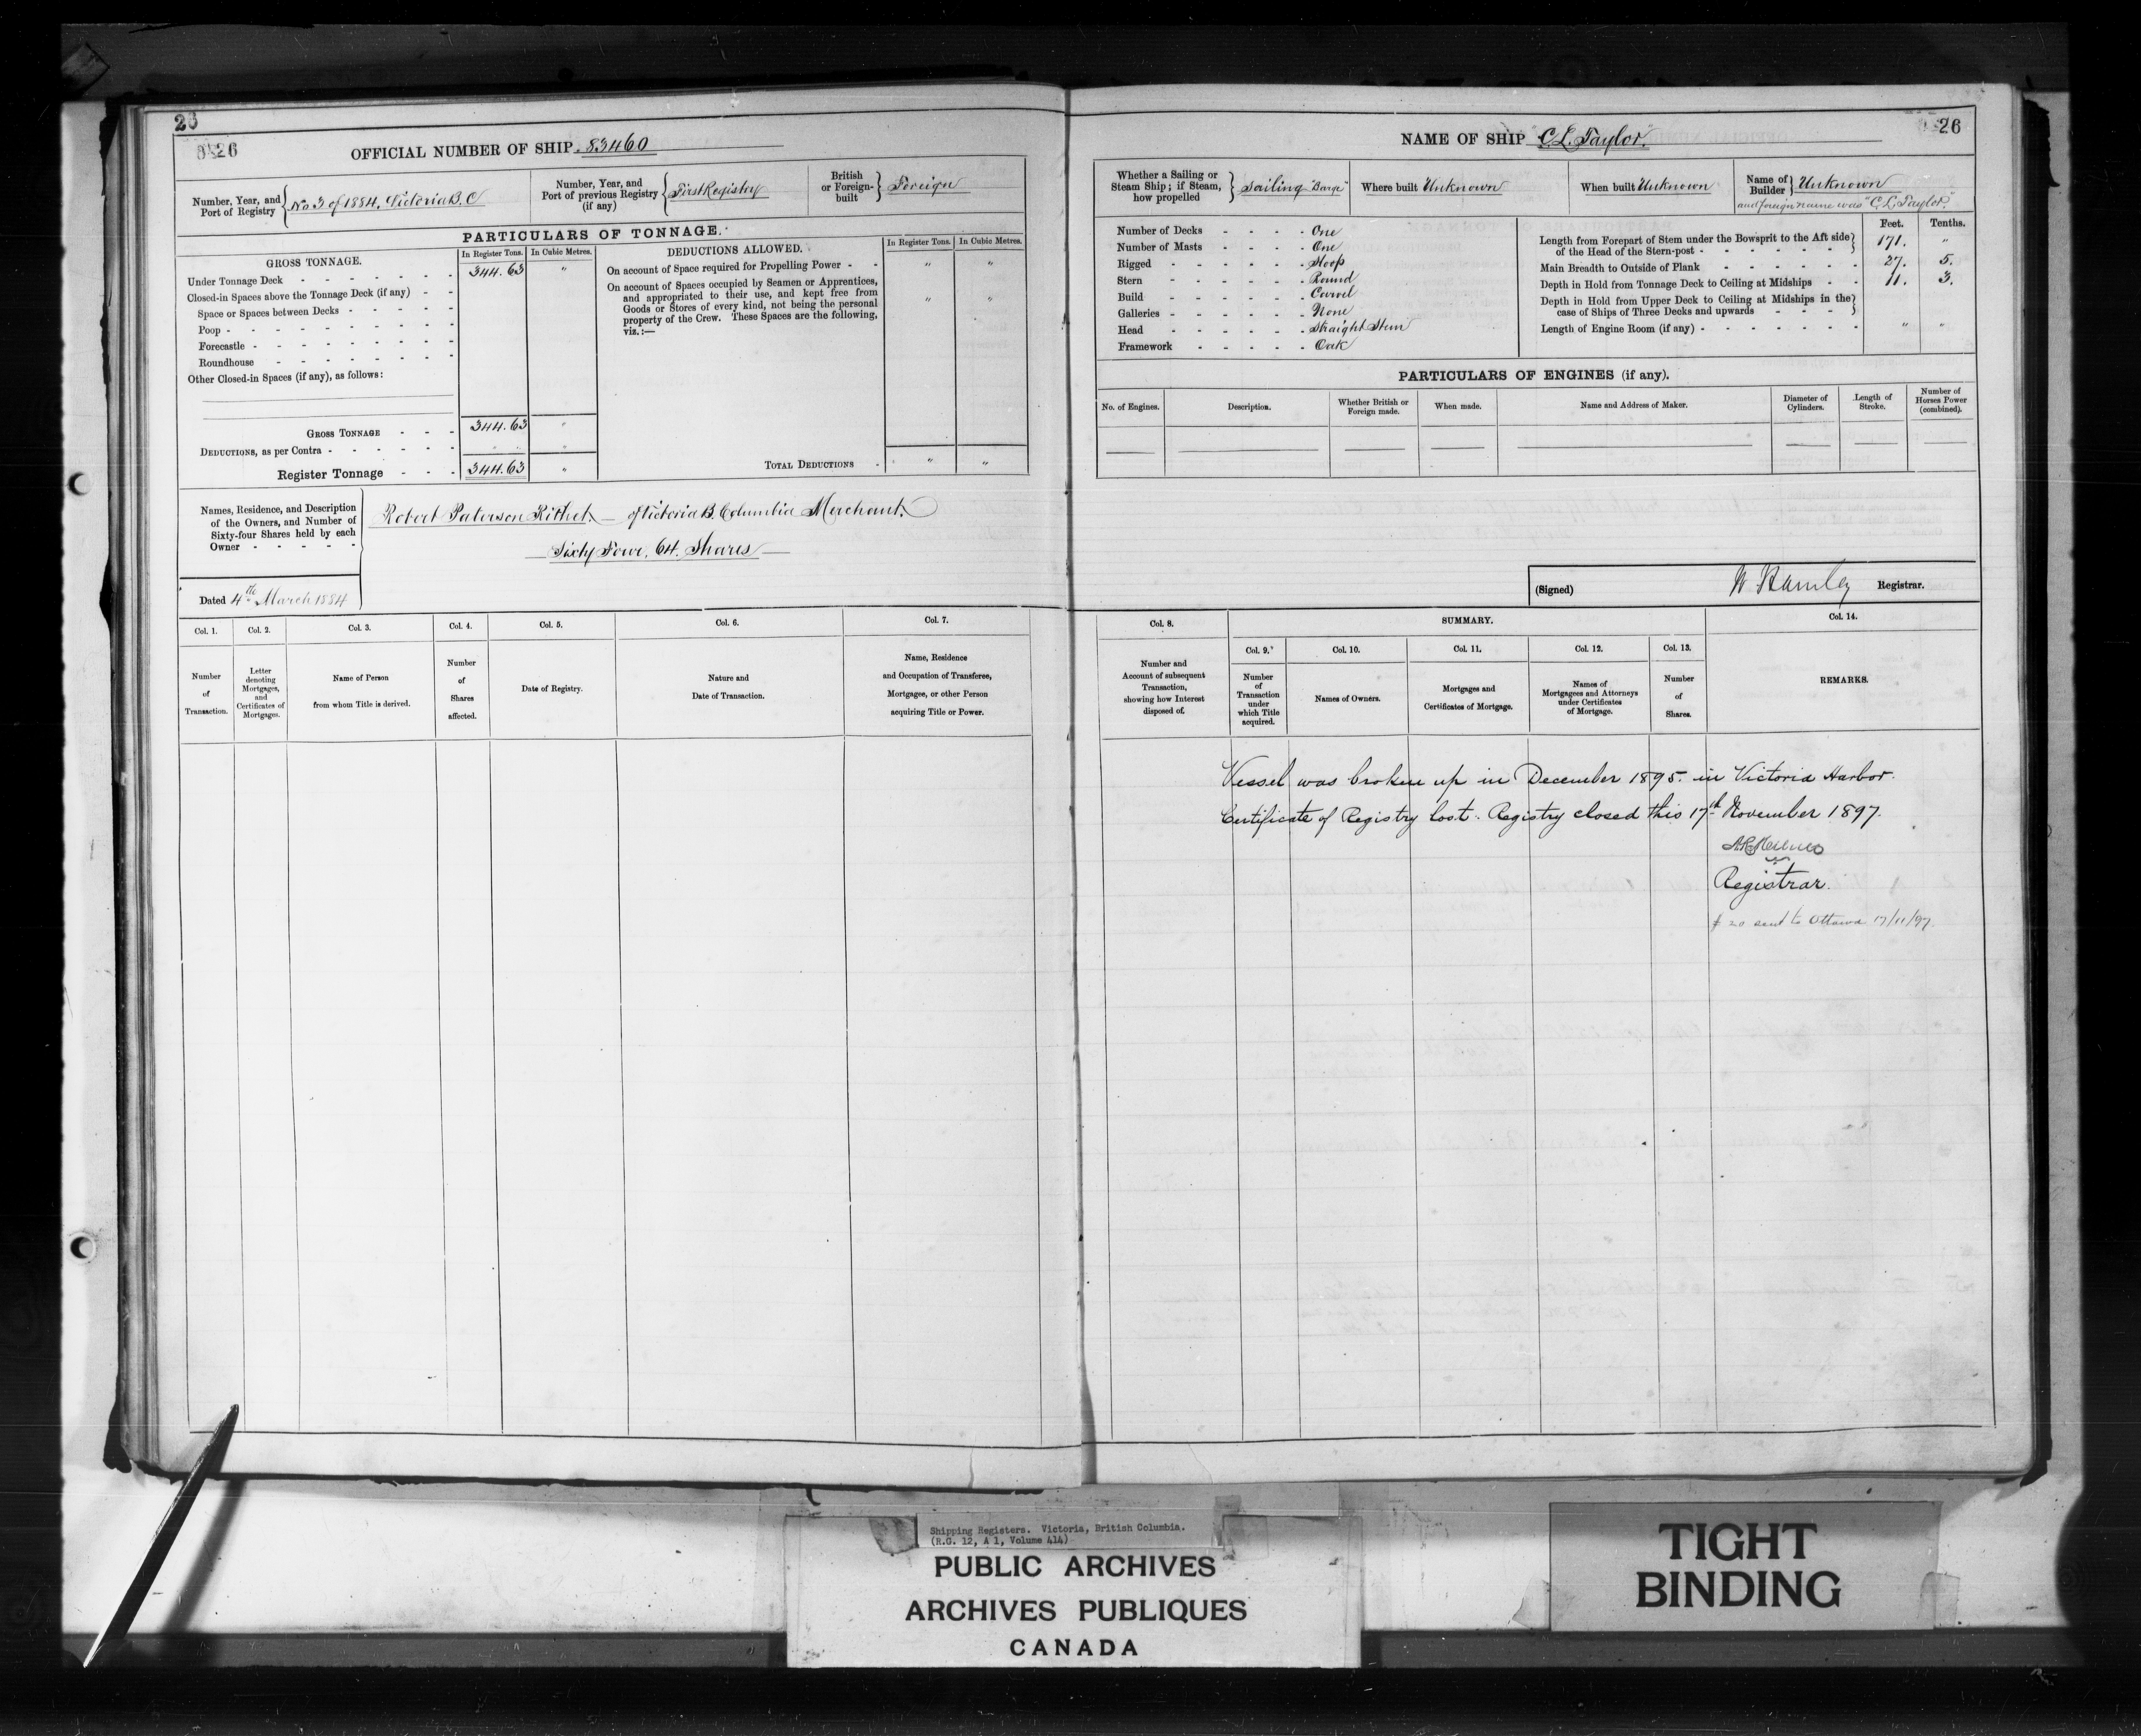 26
26
OFFICIAL NUMBER OF SHIP 83460
Number, Year, and Port of Registry { No 3 of 1884, Victoria B.C
Number, Year, and Port of previous Registry (if any) { First Registry
British or Foreign-built } Foreign
PARTICULARS OF TONNAGE.
GROSS TONNAGE.
In Register Tons. In Cubic Metres.
Under Tonnage Deck - - - - - - - 344.63 "
Closed-in Spaces above the Tonnage Deck (if any) - -
Space or Spaces between Decks - - - - -
Poop - - - - - - - - - -
Forecastle - - - - - - - - -
Roundhouse - - - - - - - -
Other Closed-in Spaces (if any), as follows:
GROSS TONNAGE - - - 344.63 "
DEDUCTIONS, as per Contra - - - - - - " "
Register Tonnage - - - 344.63 "
DEDUCTIONS ALLOWED.
In Register Tons. In Cubic Metres.
On account of Space required for Propelling Power - - " "
On account of Spaces occupied by Seamen or Apprentices,
and appropriated to their use, and kept free from " "
Goods or Stores of every kind, not being the personal
property of the Crew. These Spaces are the following,
viz.:—
TOTAL DEDUCTIONS - " "
Names, Residence, and Description
of the Owners, and Number of
Sixty-four Shares held by each
Owner - - - - -
Robert Paterson Rithet — of Victoria B. Columbia Merchant.
Sixty Four, 64. Shares —
Dated 4th March 1884
Col. 1. Col. 2. Col. 3. Col. 4. Col. 5. Col. 6. Col. 7.
Number of Transaction.
Letter denoting Mortgages, and Certificates of Mortgages.
Name of Person from whom Title is derived.
Number of Shares affected.
Date of Registry.
Nature and Date of Transaction.
Name, Residence and Occupation of Transferee, Mortgagee, or other Person acquiring Title or Power.
NAME OF SHIP "C. L. Taylor."
26
Whether a Sailing or Steam Ship; if Steam, how propelled } Sailing "Barge"
Where built Unknown
When built Unknown
Name of Builder } Unknown
and foreign name was "C. L. Taylor."
Number of Decks - - - - One
Number of Masts - - - - One
Rigged - - - - - Sloop
Stern - - - - - Round
Build - - - - - Carvel
Galleries - - - - - None
Head - - - - - Straight Stem
Framework - - - - - Oak
Feet. Tenths.
Length from Forepart of Stem under the Bowsprit to the Aft side
of the Head of the Stern-post - - - - - - 171. "
Main Breadth to Outside of Plank - - - - - - 27. 5.
Depth in Hold from Tonnage Deck to Ceiling at Midships - - 11. 3.
Depth in Hold from Upper Deck to Ceiling at Midships in the
case of Ships of Three Decks and upwards - - -
Length of Engine Room (if any) - - - - - - - " "
PARTICULARS OF ENGINES (if any).
No. of Engines. Description. Whether British or Foreign made. When made. Name and Address of Maker. Diameter of Cylinders. Length of Stroke. Number of Horses Power (combined).
(Signed) W Hamley Registrar.
Col. 8. SUMMARY. Col. 14.
Col. 9. Col. 10. Col. 11. Col. 12. Col. 13.
Number and Account of subsequent Transaction, showing how Interest disposed of.
Number of Transaction under which Title acquired.
Names of Owners.
Mortgages and Certificates of Mortgage.
Names of Mortgagees and Attorneys under Certificates of Mortgage.
Number of Shares.
REMARKS.
Vessel was broken up in December 1895. in Victoria Harbor.
Certificate of Registry lost. Registry closed this 17th November 1897.
Registrar.
20 sent to Ottawa 17/11/97.
Shipping Registers. Victoria, British Columbia.
(R.G. 12, A 1, Volume 414)
PUBLIC ARCHIVES
ARCHIVES PUBLIQUES
CANADA
TIGHT
BINDING